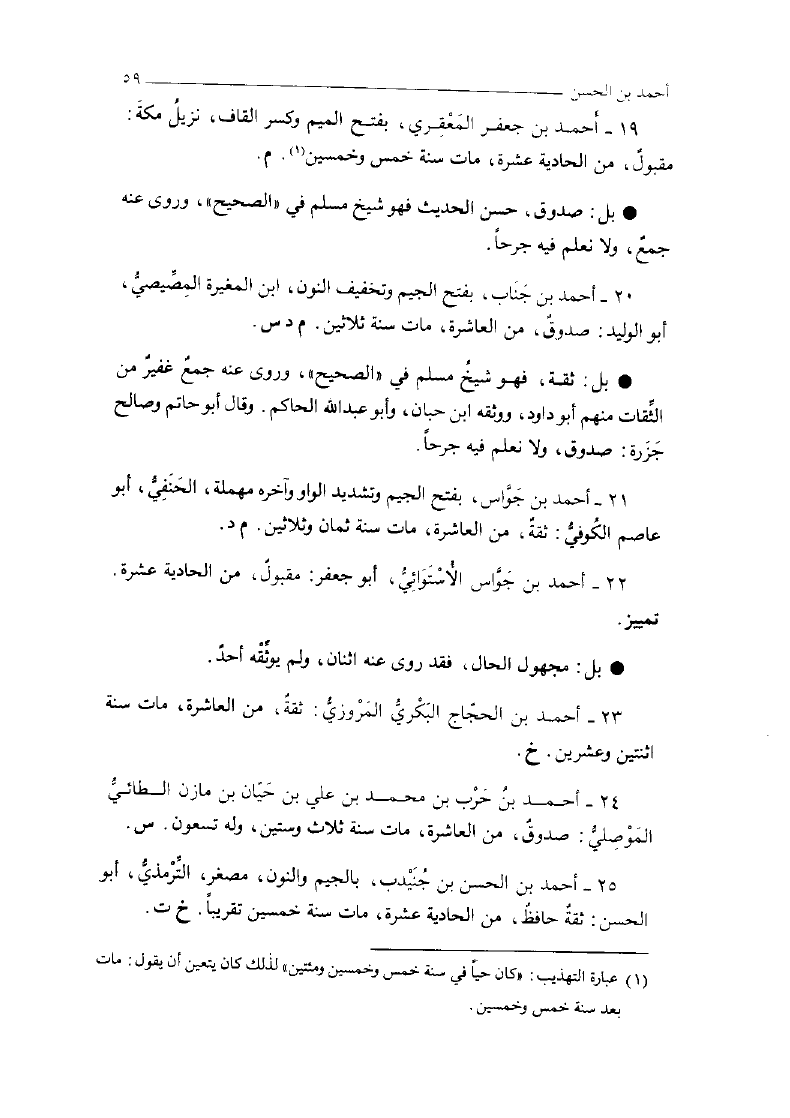 أحمد بن الحسن ــــــــــــــــــــ ٥٩
١٩ ـ أحمد بن جعفر المَعْقِري، بفتح الميم وكسر القاف، نزيلُ مكةَ:
مقبولٌ، من الحادية عشرة، مات سنة خمس وخمسين(١). م.
● بل: صدوق، حسن الحديث فهو شيخ مسلم في «الصحيح»، وروى عنه
جمعٌ، ولا نعلم فيه جرحاً.
٢٠ ـ أحمد بن جَنَاب، بفتح الجيم وتخفيف النون، ابن المغيرة المِصِّيصيُّ،
أبو الوليد: صدوقٌ، من العاشرة، مات سنة ثلاثين. م د س.
● بل: ثقة، فهو شيخُ مسلم في «الصحيح»، وروى عنه جمعٌ غفيرٌ من
الثِّقات منهم أبو داود، ووثقه ابن حبان، وأبو عبدالله الحاكم. وقال أبو حاتم وصالح
جَزَرة: صدوق، ولا نعلم فيه جرحاً.
٢١ ـ أحمد بن جَوَّاس، بفتح الجيم وتشديد الواو وآخره مهملة، الحَنَفيُّ، أبو
عاصم الكُوفيُّ: ثقةٌ، من العاشرة، مات سنة ثمان وثلاثين. م د.
٢٢ ـ أحمد بن جَوَّاس الأُسْتَوَائِيُّ، أبو جعفر: مقبولٌ، من الحادية عشرة.
تمييز.
● بل: مجهول الحال، فقد روى عنه اثنان، ولم يوثِّقْه أحدٌ.
٢٣ ـ أحمد بن الحجّاج البَكْريُّ المَرْوزيُّ: ثقةٌ، من العاشرة، مات سنة
اثنتين وعشرين. خ.
٢٤ ـ أحمد بنُ حَرْب بن محمد بن علي بن حَيّان بن مازن الطائيُّ
المَوْصِليُّ: صدوقٌ، من العاشرة، مات سنة ثلاث وستين، وله تسعون. س.
٢٥ ـ أحمد بن الحسن بن جُنَيْدب، بالجيم والنون، مصغر، التِّرمذيُّ، أبو
الحسن: ثقةٌ حافظٌ، من الحادية عشرة، مات سنة خمسين تقريباً. خ ت.
(١) عبارة التهذيب: «كان حياً في سنة خمس وخمسين ومئتين» لذلك كان يتعين أن يقول: مات
بعد سنة خمس وخمسين.